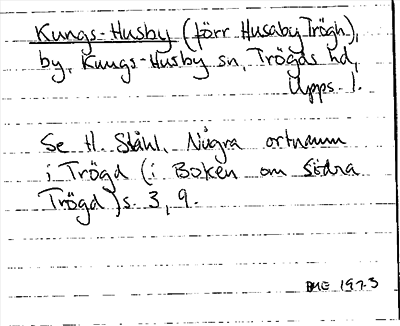 Kungs-Husby (förr Husaby Trögh),
by, Kungs-Husby sn, Trögds hd,
Upps. l.
Se H. Ståhl, Några ortnamn
i Trögd (i Boken om Södra
Trögd) s. 3, 9.
BME 1973